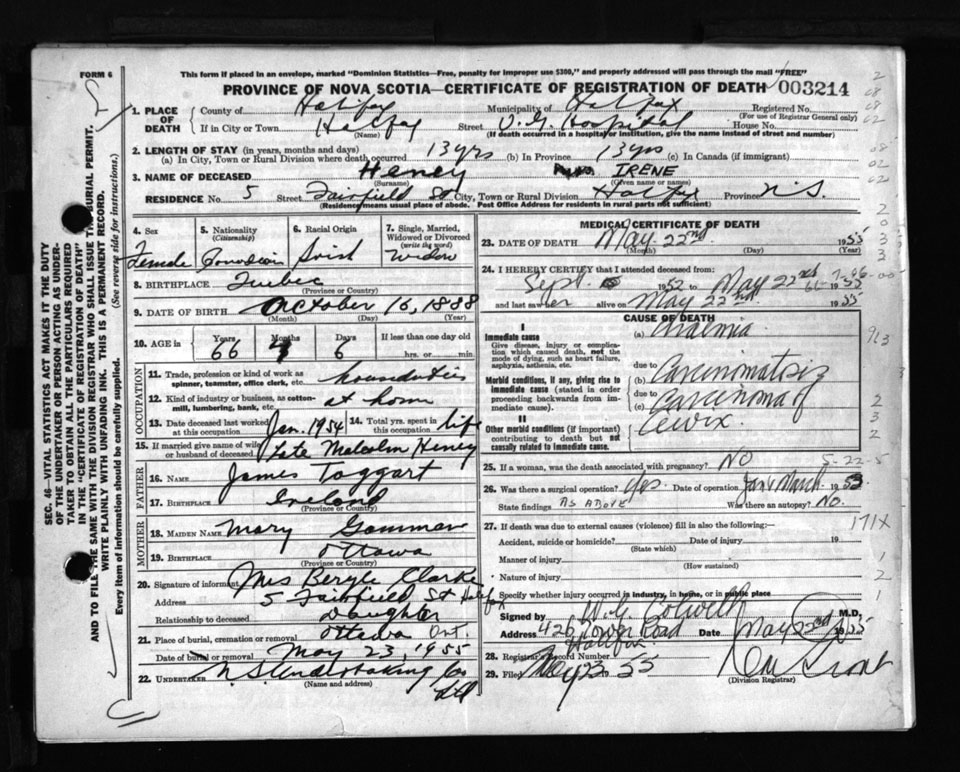 FORM 6
This form if placed in an envelope, marked "Dominion Statistics—Free, penalty for improper use $300," and properly addressed will pass through the mail "FREE"
PROVINCE OF NOVA SCOTIA—CERTIFICATE OF REGISTRATION OF DEATH 003214
1. PLACE OF DEATH County of Halifax Municipality of Halifax Registered No.
(For use of Registrar General only)
If in City or Town Halifax Street V.G. Hospital House No.
(If death occurred in a hospital or institution, give the name instead of street and number)
2. LENGTH OF STAY (in years, months and days)
(a) In City, Town or Rural Division where death occurred 13 yrs (b) In Province 13 yrs (c) In Canada (if immigrant)
3. NAME OF DECEASED Heney Mrs IRENE
(Surname) (Given name or names)
RESIDENCE No. 5 Street Fairfield St City, Town or Rural Division Halifax Province N.S.
(Residency means usual place of abode. Post Office Address for residents in rural parts not sufficient)
4. Sex Female
5. Nationality (Citizenship) Canadian
6. Racial Origin Irish
7. Single, Married, Widowed or Divorced (write the word) Widow
8. BIRTHPLACE Quebec
(Province or Country)
9. DATE OF BIRTH October 16, 1888
(Month) (Day) (Year)
10. AGE in Years Months Days If less than one day old
66 7 6 hrs. or min.
OCCUPATION
11. Trade, profession or kind of work as spinner, teamster, office clerk, etc. houseduties
12. Kind of industry or business, as cotton-mill, lumbering, bank, etc. at home
13. Date deceased last worked at this occupation Jan. 1954
14. Total yrs. spent in this occupation life
15. If married give name of wife or husband of deceased Late Malcolm Heney
FATHER
16. NAME James Taggart
17. BIRTHPLACE Ireland
(Province or Country)
MOTHER
18. MAIDEN NAME Mary
19. BIRTHPLACE Ottawa
(Province or Country)
20. Signature of informant Mrs Beryle Clarke
Address 5 Fairfield St Halifax
Relationship to deceased Daughter
21. Place of burial, cremation or removal Ottawa Ont.
Date of burial or removal May 23, 1955
22. UNDERTAKER N S Undertaking Co Ltd
(Name and address)
MEDICAL CERTIFICATE OF DEATH
23. DATE OF DEATH May 22nd 1955
(Month) (Day) (Year)
24. I HEREBY CERTIFY that I attended deceased from:
Sept. 1952 to May 22nd 1955
and last saw her alive on May 22nd 1955
CAUSE OF DEATH
I
Immediate cause (a) Uraemia
Give disease, injury or complication which caused death, not the mode of dying, such as heart failure, asphyxia, asthenia, etc.
due to
Morbid conditions, if any, giving rise to immediate cause (stated in order proceeding backwards from immediate cause). (b) Carcinomatosis
due to
(c) Carcinoma of Cervix
II
Other morbid conditions (if important) contributing to death but not causally related to immediate cause.
25. If a woman, was the death associated with pregnancy? NO
26. Was there a surgical operation? Yes Date of operation Jan & March 1953
State findings AS ABOVE Was there an autopsy? NO.
27. If death was due to external causes (violence) fill in also the following:—
Accident, suicide or homicide? Date of injury 19
(State which)
Manner of injury
(How sustained)
Nature of injury
Specify whether injury occurred in industry, in home, or in public place
Signed by W.G. Colwell M.D.
Address 426 Tower Road Halifax Date May 22nd 1955
28. Registrar's Record Number
29. Filed May 23 55
(Division Registrar)
SEC. 46—VITAL STATISTICS ACT MAKES IT THE DUTY
OF THE UNDERTAKER OR PERSON ACTING AS UNDERTAKER TO OBTAIN ALL THE PARTICULARS REQUIRED
IN THE "CERTIFICATE OF REGISTRATION OF DEATH"
AND TO FILE THE SAME WITH THE DIVISION REGISTRAR WHO SHALL ISSUE THE BURIAL PERMIT.
WRITE PLAINLY WITH UNFADING INK. THIS IS A PERMANENT RECORD.
Every item of information should be carefully supplied. (See reverse side for instructions.)
5-22-5
171X